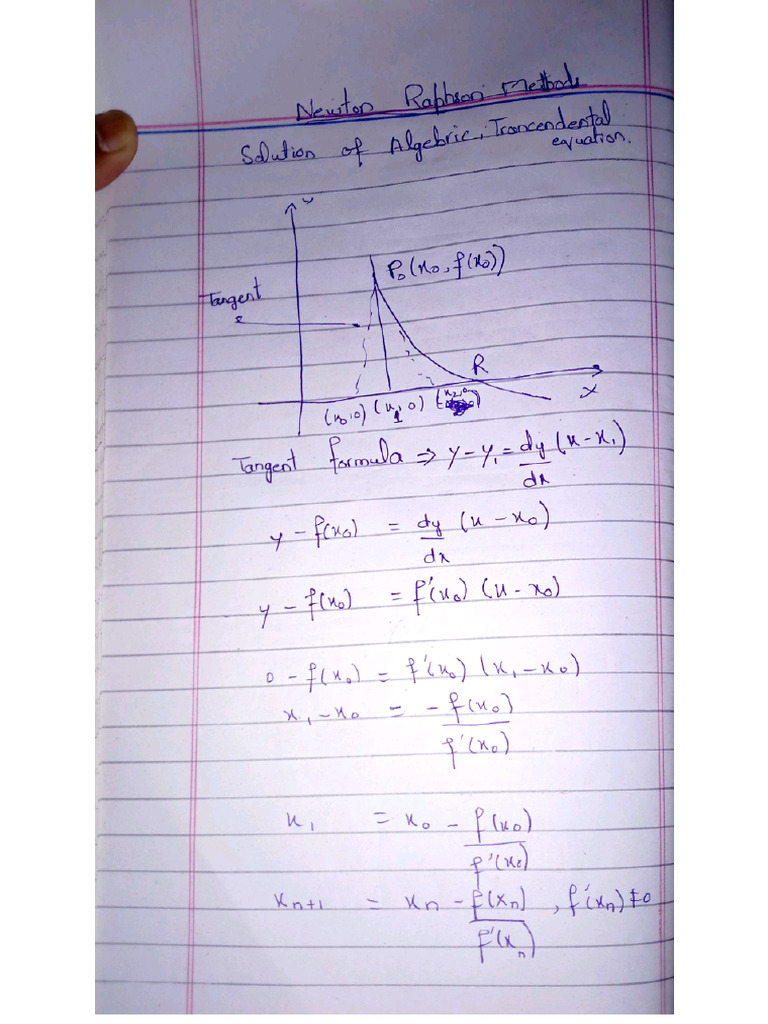 Newton Raphson Methods
Solution of Algebric, Trancendental
equation.
y
P₀(x₀, f(x₀))
Tangent
R
x
(x₀,0) (x₁,0) (x₂,0)
Tangent formula ⇒ y - y₁ = dy/dx (x - x₁)
y - f(x₀) = dy/dx (x - x₀)
y - f(x₀) = f'(x₀) (x - x₀)
0 - f(x₀) = f'(x₀) (x₁ - x₀)
x₁ - x₀ = - f(x₀)/f'(x₀)
x₁ = x₀ - f(x₀)/f'(x₀)
xₙ₊₁ = xₙ - f(xₙ)/f'(xₙ) , f'(xₙ) ≠ 0